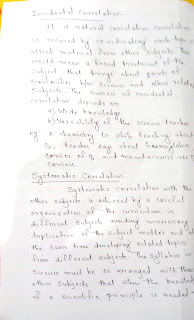 Incidental Correlation
It is a natural correlation correlation
is secured by co-ordinating each topic
allied material from other subjects. This
would mean a broad treatment of the
subject that brings about points of
similarities b/w science and other related
subjects. The success of incidental
correlation depends on
a) Wide knowledge
b) Versatility of the science teacher
eg: A chemistry tr while teaching about
O₂, teacher says about haemoglobin
carrier of O₂ and mountaineers use O₂
carriers.
Systematic Correlation.
Systematic correlation with the
other subjects is achieved by a careful
organization of the curriculum in
different subjects avoiding unnecessary
duplication of the subject matter and at
the same time developing related topics
from different subjects. The syllabus in
science must be so arranged with those
other subjects that when the knowledge
of a scientific principle is needed